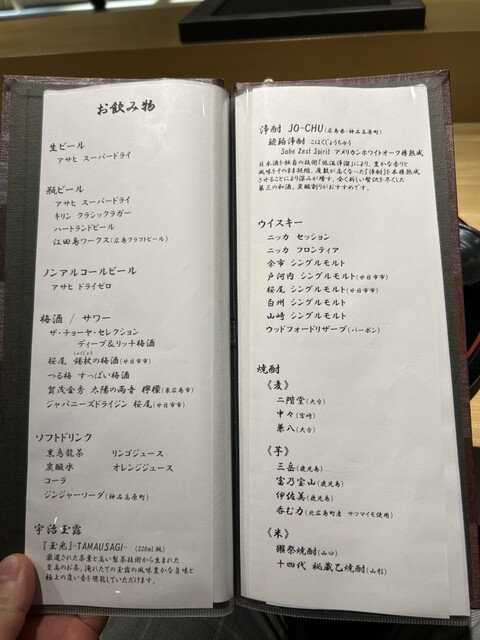 お飲み物
生ビール
アサヒ スーパードライ
瓶ビール
アサヒ スーパードライ
キリン クラシックラガー
ハートランドビール
江田島ワークス(広島クラフトビール)
ノンアルコールビール
アサヒ ドライゼロ
梅酒 / サワー
ザ・チョーヤ・セレクション
ディープ&リッチ梅酒
桜尾 錫紋の梅酒(廿日市市)
つる梅 すっぱい梅酒
賀茂金秀 太陽の雨音 檸檬(東広島市)
ジャパニーズドライジン 桜尾(廿日市市)
ソフトドリンク
黒烏龍茶 リンゴジュース
炭酸水 オレンジジュース
コーラ
ジンジャーソーダ(神石高原町)
宇治玉露
『玉兎』-TAMAUSAGI- (220ml瓶)
厳選された茶葉と高い製茶技術から生まれた
至高のお茶。淹れたての玉露の風味豊かな旨味と
極上の良い香を堪能していただけます。
浄酎 JO-CHU(広島県・神石高原町)
琥珀浄酎 こはくじょうちゅう
Sake Zest Spirit アメリカンホワイトオーク樽熟成
日本酒を独自の技術「低温浄溜」により、豊かな香りと
風味をそのまま凝縮、度数が高くなった『浄酎』を木樽熟成
させることにより深みが増す。全く新しい贅沢を尽くした
第三の和酒。炭酸割りがおすすめです。
ウイスキー
ニッカ セッション
ニッカ フロンティア
余市 シングルモルト
戸河内 シングルモルト(廿日市市)
桜尾 シングルモルト(廿日市市)
白州 シングルモルト
山崎 シングルモルト
ウッドフォードリザーブ(バーボン)
焼酎
《麦》
二階堂(大分)
中々(宮崎)
兼八(大分)
《芋》
三岳(鹿児島)
富乃宝山(鹿児島)
伊佐美(鹿児島)
呑む力(北広島町産 サツマイモ使用)
《米》
獺祭焼酎(山口)
十四代 秘蔵乙焼酎(山形)